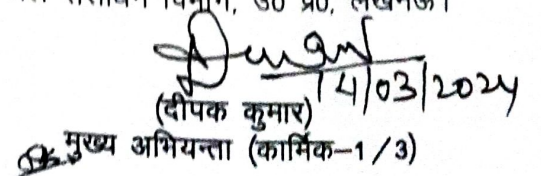 विभाग, उ0 प्र0, लखनऊ।
14/03/2024
(दीपक कुमार)
मुख्य अभियन्ता (कार्मिक-1/3)